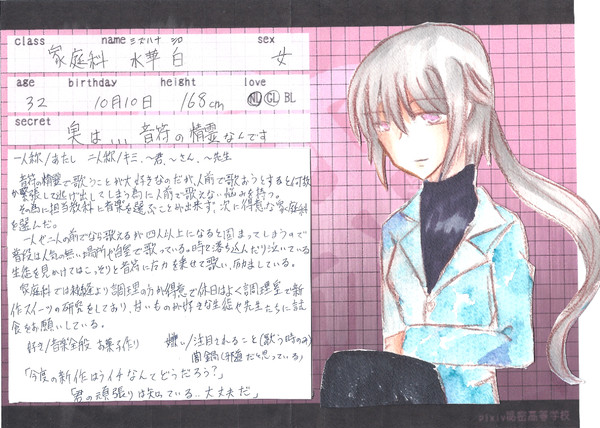 class name ミズハナ シロ sex
家庭科 水華 白 女
age birthday height love
32 10月10日 168cm NL GL BL
secret
実は... 音符の精霊なんです
一人称/あたし 二人称/キミ、～君、～さん、～先生
音符の精霊で歌うことが大好きなのだが、人前で歌おうとすると何故
か緊張して逃げ出してしまう為に人前で歌えない悩みを持つ。
その為に担当教科も音楽を選ぶことが出来ず、次に得意な家庭科
を選んだ。
一人や二人の前でなら歌えるが四人以上になると固まってしまうので
普段は人気の無い場所や自室で歌っている。時々落ち込んだり泣いている
生徒を見かけてはこっそりと音符に応力を乗せて歌い、励ましている。
家庭科では裁縫より調理の方が得意で休日はよく調理室で新
作スイーツの研究をしており、甘いものが好きな生徒や先生たちに試
食をお願いしている。
好き/音楽全般 お菓子作り 嫌い/注目されること(歌う時のみ)
闇鍋(邪道だと思っている)
「今度の新作はうイチなんてどうだろう?」
「君の頑張りは知っている...大丈夫だ」
pixiv秘密高等学校